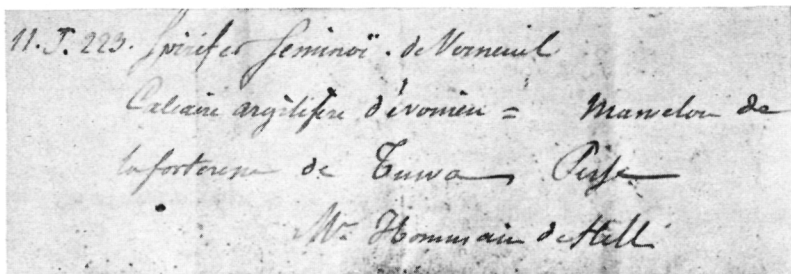 11. J. 223. Spirifer Seminoï. de Verneuil
Calcaire argilifère dévonien = Mamelon de
la forteresse de Tuwa Perse
Mr. Hommaire de Hell